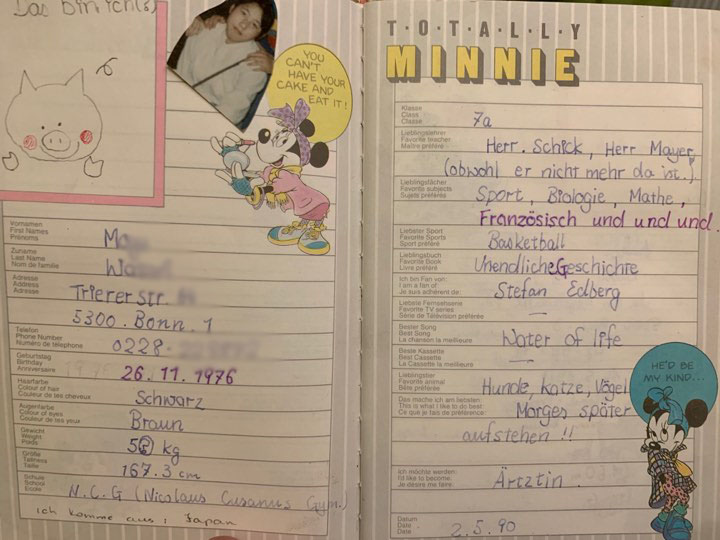 Das bin ich(s)
YOU
CAN'T
HAVE YOUR
CAKE AND
EAT IT!
Vornamen
First Names
Prénoms
Zuname
Last Name
Nom de famille
Adresse
Address
Adresse
Trierer str.
5300. Bonn. 1
Telefon
Phone Number
Numéro de téléphone
0228.
Geburtstag
Birthday
Anniversaire
26.11.1976
Haarfarbe
Colour of hair
Couleur de tes cheveux
Schwarz
Augenfarbe
Colour of eyes
Couleur de tes yeux
Braun
Gewicht
Weight
Poids
kg
Größe
Tallness
Taille
167.3 cm
Schule
School
Ecole
N.C.G (Nicolaus Cusanus Gym.)
ich komme aus: Japan
T·O·T·A·L·L·Y
MINNIE
Klasse
Class
Classe
7a
Lieblingslehrer
Favorite teacher
Maître préféré
Herr. Schick, Herr Mayer
(obwohl er nicht mehr da ist.)
Lieblingsfächer
Favorite subjects
Sujets préférés
Sport, Biologie, Mathe,
Französisch und und und.
Liebster Sport
Favorite Sports
Sport préféré
Basketball
Lieblingsbuch
Favorite Book
Livre préféré
UnendlicheGeschichte
Ich bin Fan von:
I am a fan of:
Je suis adhérent de:
Stefan Edberg
Liebste Fernsehserie
Favorite TV series
Série de Télévision préférée
—
Bester Song
Best Song
La chanson la meilleure
Water of life
Beste Kassette
Best Cassette
La Cassette la meilleure
—
Lieblingstier
Favorite animal
Bête préférée
Hunde, Katze, Vögel
Das mache ich am liebsten:
This is what I like to do best:
Ce que je fais de préférence:
Morges später
aufstehen !!
Ich möchte werden:
I'd like to become:
Je désire me faire:
Ärtztin.
Datum
Date
Date
2.5.90
HE'D BE
MY KIND...